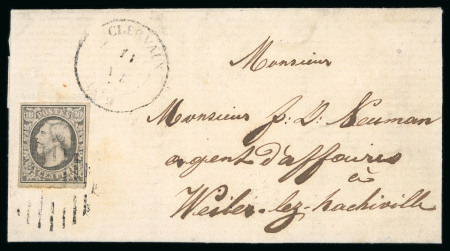 CLERVAUX
10 POSTES 10
Monsieur
Monsieur J: P: Neuman
agent d'affaires
à
Weiler-lez-hachiville